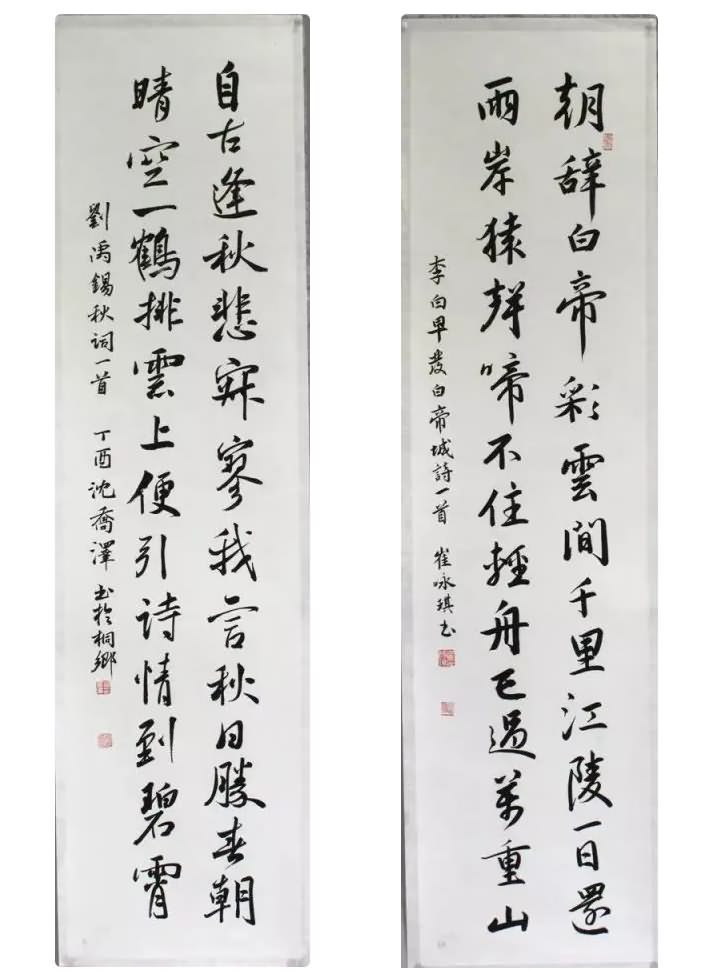 朝辞白帝彩雲間千里江陵一日還
兩岸猿聲啼不住輕舟已過萬重山
李白早發白帝城詩一首 崔咏琪书
自古逢秋悲寂寥我言秋日勝春朝
晴空一鶴排雲上便引詩情到碧霄
劉禹錫秋詞一首 丁酉沈喬澤书於桐鄉